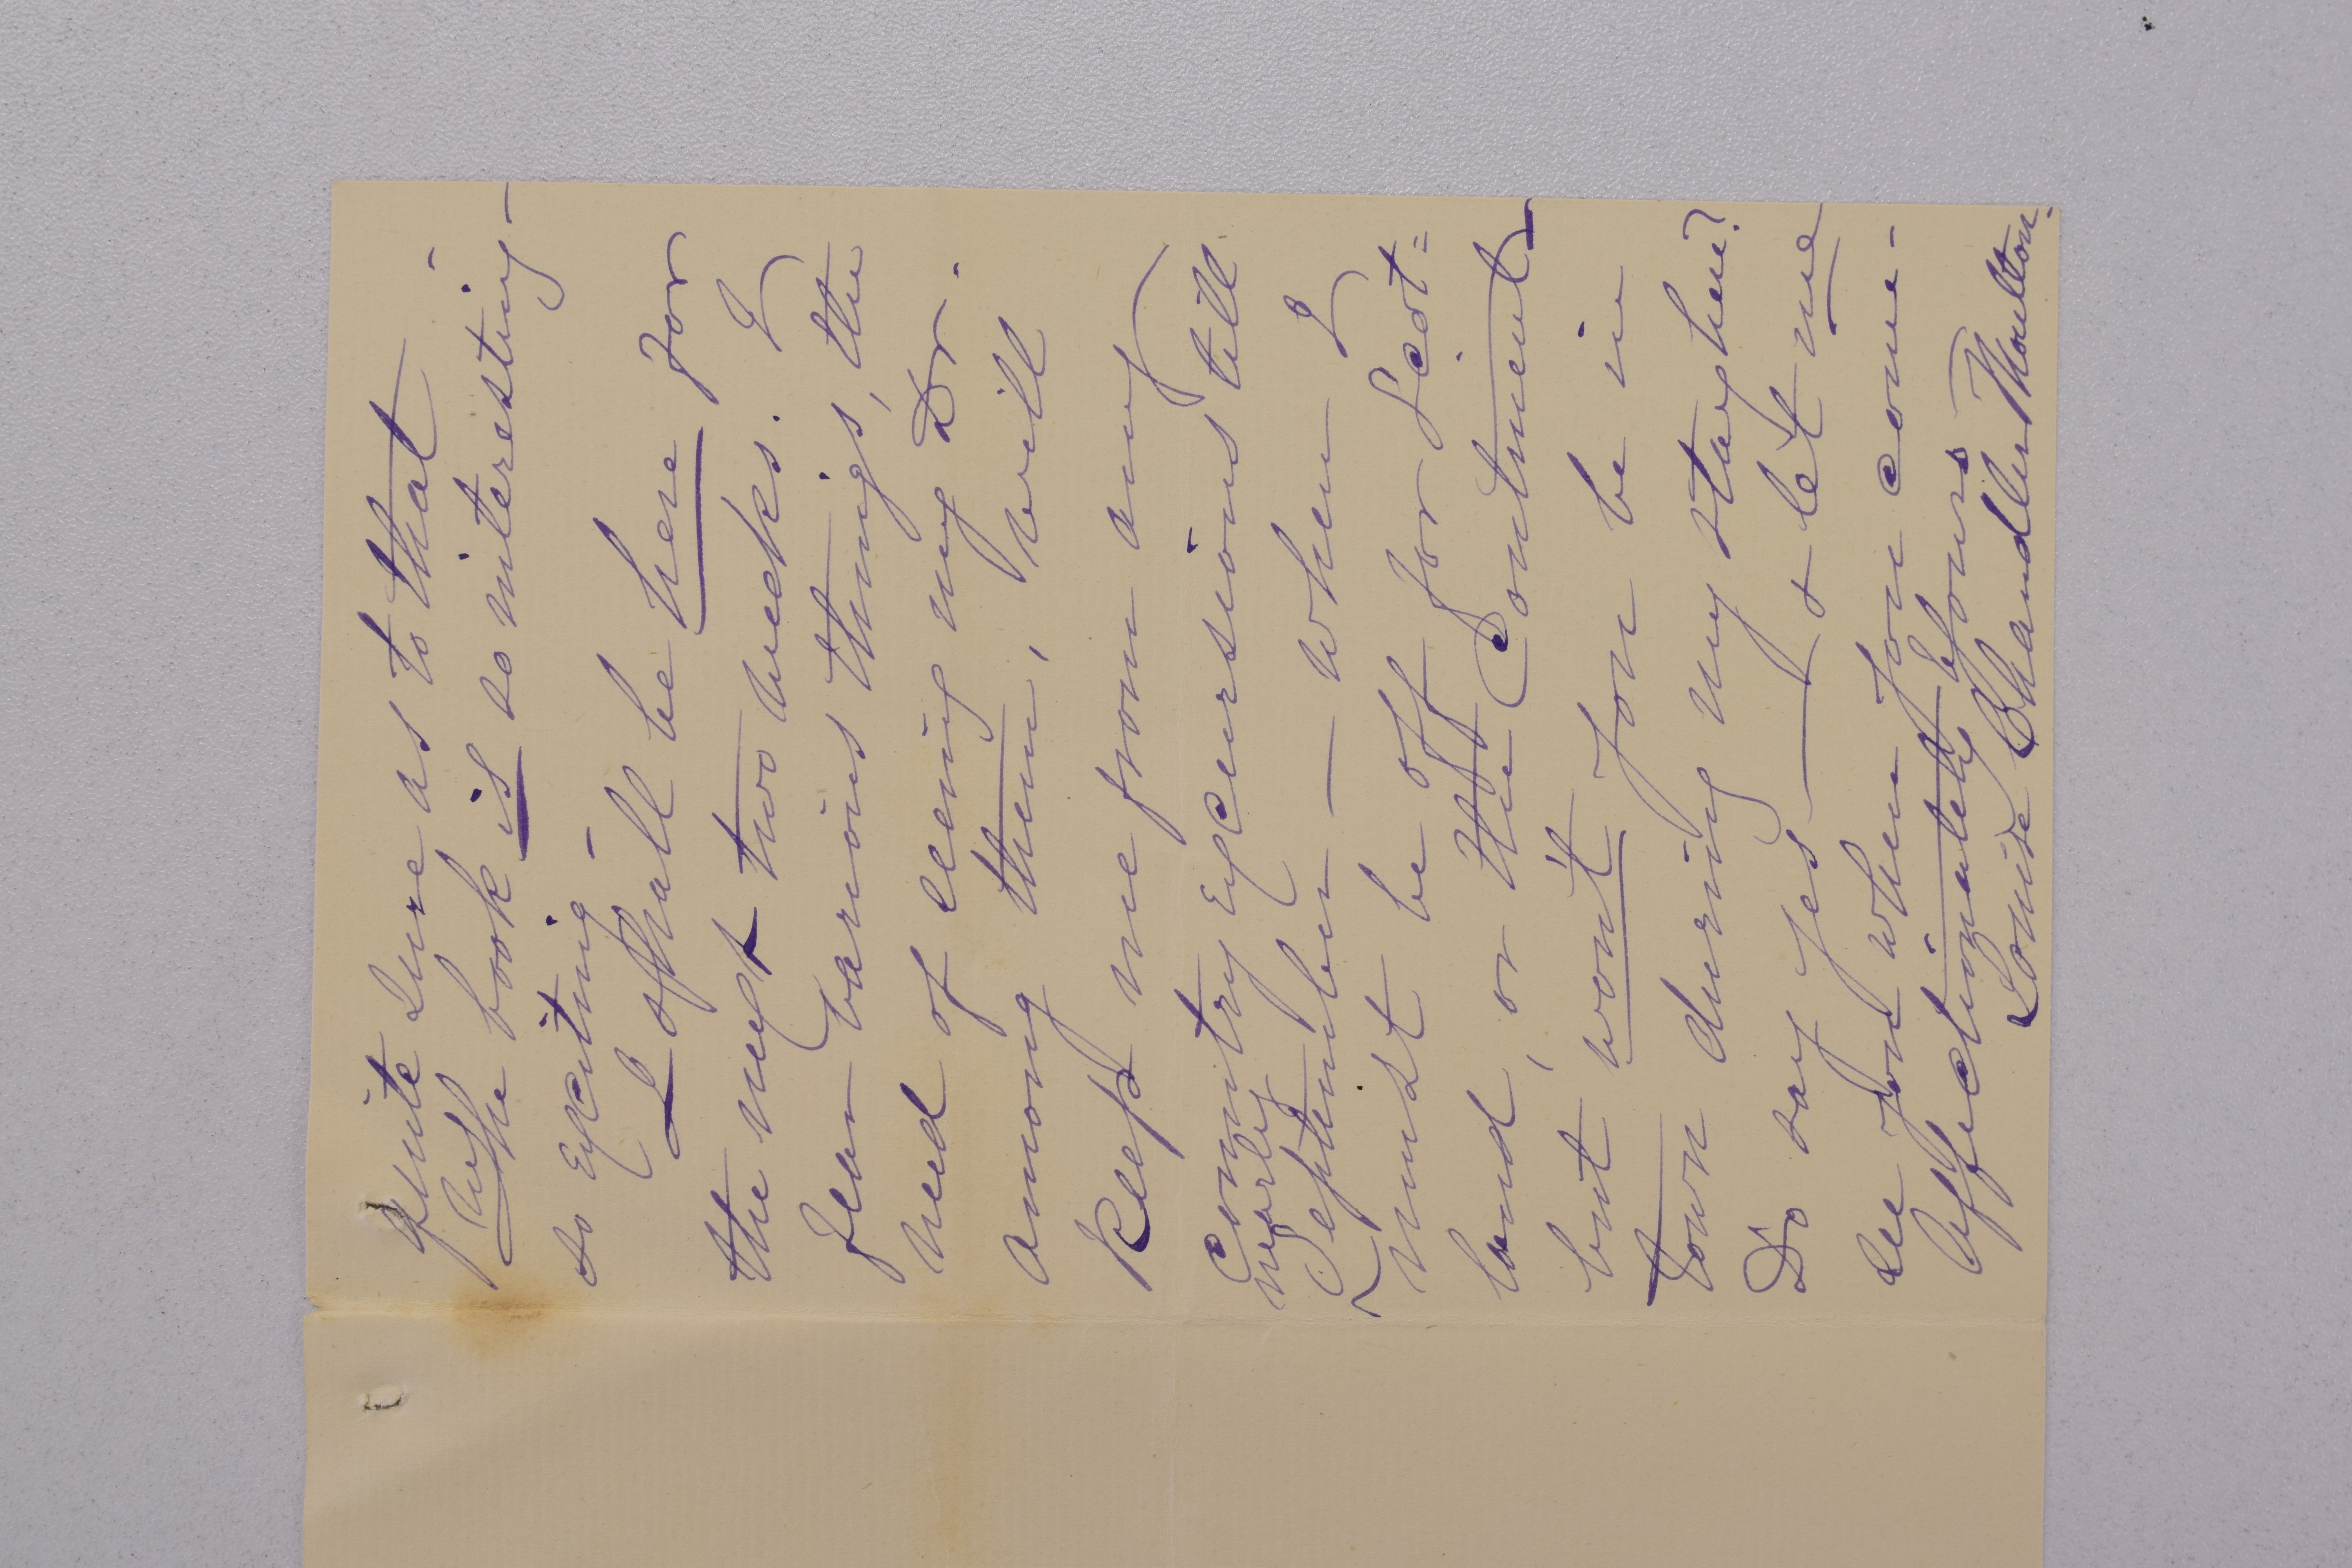 quite sure as to that -
The book is so interesting -
so exciting -
I shall be here for
the next two weeks. I
fear various things, the
need of seeing my Dr.
among them, will
keep me from any
country excursions till
nearly
September — when I
must be off for Scot=
land, or the Continent
but won't you be in
town during my stay here?
Do say yes — & let me
see you when you come -
Affectionately yours
Louise Chandler Moulton.